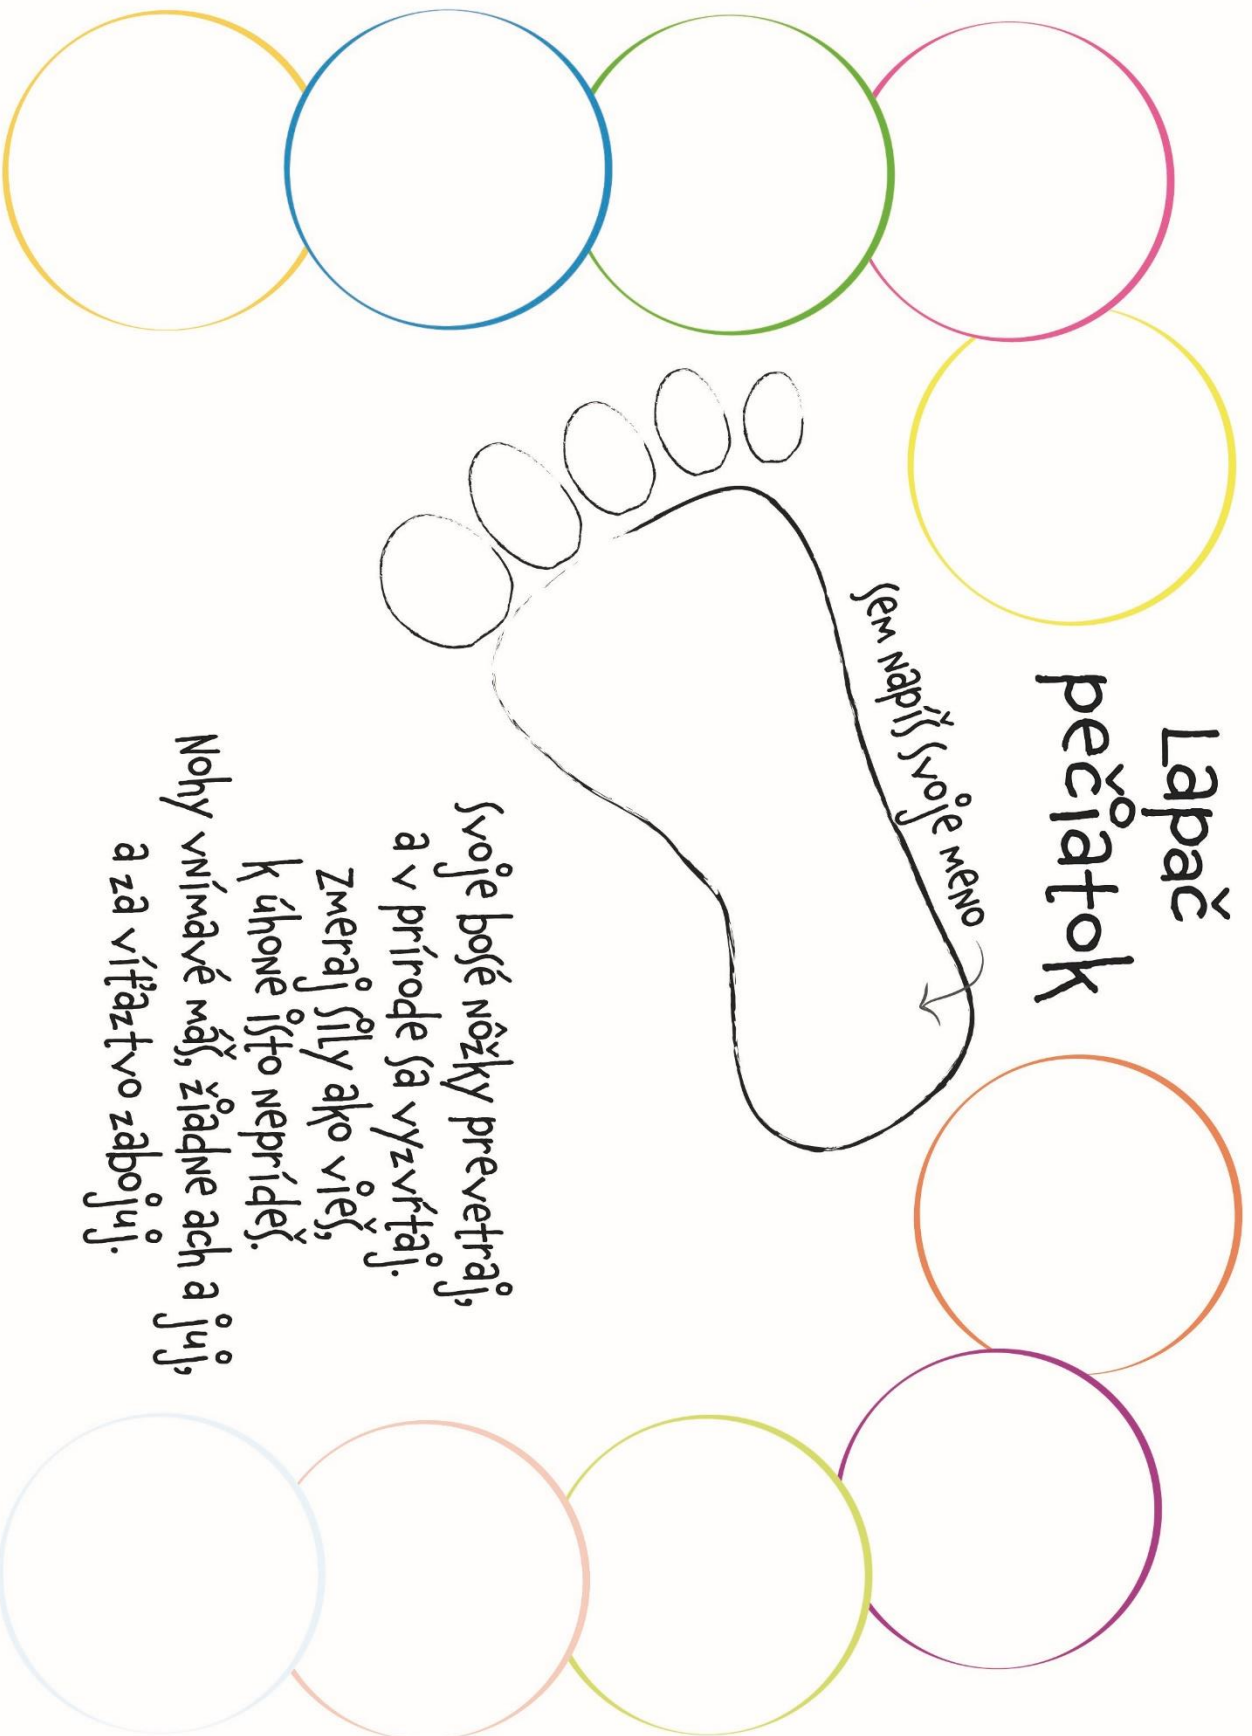 Lapač
pečiatok
sem napíš svoje meno
Svoje bosé nôžky prevetraj,
a v prírode sa vyzvŕtaj.
Zmeraj sily ako vieš,
k úhone isto neprídeš.
Nohy vnímavé máš, žiadne ach a juj,
a za víťaztvo zabojuj.